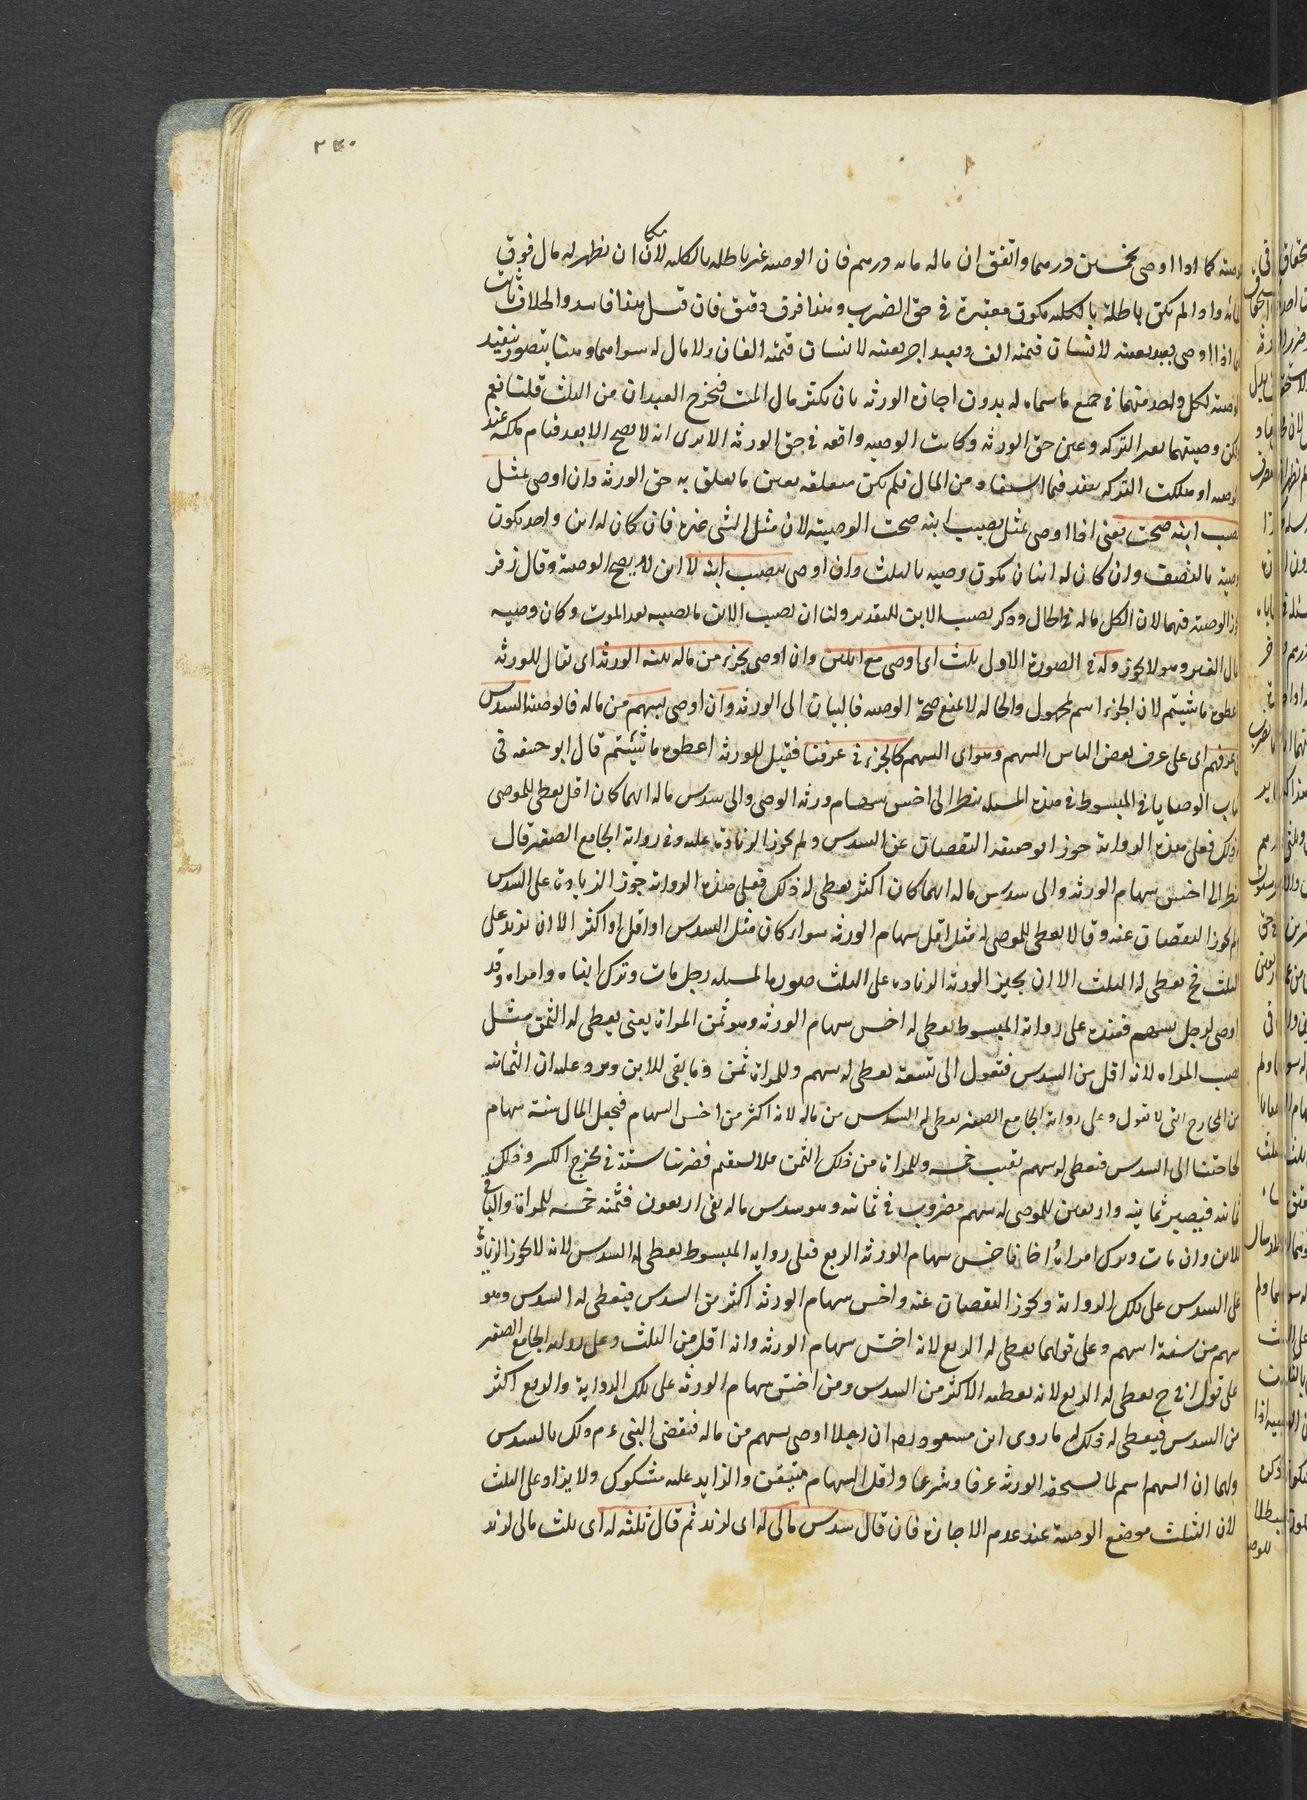 ٢٣٠
وصيته كما اذا اوصى بخمسين درهما واتفق ان ماله مايه درهم فان الوصيه غير باطله بالكليه لامكان ان يظهر له مال فوق
المائة واذا لم تكن باطلة بالكليه يكون معتبرة في حق الضرب وهذا فرق دقيق فان قيل هذا فاسد والخلاف ثابت
فيما اذا اوصى بعبد بعينه لانسان قيمته الف وبعبد اخر بعينه لانسان قيمته الفان ولا مال له سواهما وهنا يتصور تنفيذ
الوصيه لكل واحد منهما في جميع ما سماه له بدون اجازة الورثه بان يكثر مال الميت فيخرج العبدان من الثلث قلنا نعم
لكن وصيتهما بعد التركه وعين حق الورثه وكانت الوصيه واقعه في حق الورثه الا يرى انه لا يصح الا بعد قيام ملكه عند
الوصيه او هلكت التركه ينفذ فيما استفاد من المال فلم تكن متعلقه بعين ما تعلق به حق الورثه وان اوصى بمثل
نصيب ابنه صحت يعنى اذا اوصى بمثل نصيب ابنه صحت الوصيته لان مثل الشى غيره فان كان له ابن واحد يكون
وصية بالنصف وان كان له ابنان يكون وصيه بالثلث وان اوصى بنصيب ابنه لا اى لا يصح الوصية وقال زفر
جاز الوصيه فيهما لان الكل ماله في الحال وذكر نصيب الابن للتقدير ولنا ان نصيب الابن ما يصيبه بعد الموت وكان وصيه
بمال الغير وهو لا يجوز وله في الصورة الاول ثلث اى اوصى مع ابنين وان اوصى بجزء من ماله بينه الورثه اى يقال للورثه
اعطوه ما شيتم لان الجزء اسم لمجهول والجهاله لا يمنع صحة الوصيه فالبيان الى الورثه وان اوصى بسهم من ماله فالوصيه السدس
في عرفهم اى على عرف بعض الناس السهم وهو اى السهم كالجزء في عرفنا فيقيل للورثه اعطوه ما شيئتم قال ابو حنيفه في
باب الوصايا في المبسوط في هذه المسئله ينظر الى اخس سهام ورثه الموصى والى سدس ماله ايهما كان اقل يعطى للموصى
له ذلك فعلى هذه الروايه جوز ابو حنيفه النقصان عن السدس ولم يجوز الزيادة عليه وفى رواية الجامع الصغير قال
ينظر الى اخس سهام الورثه والى سدس ماله ايهما كان اكثر يعطى له ذلك فعلى هذه الروايه جوز الزيادة على السدس
ولم يجوز النقصان عنه وقالا يعطى للموصى له مثل اقل سهام الورثه سواء كان مثل السدس او اقل او اكثر الا ان يزيد على
الثلث فح يعطى له الثلث الا ان يجيز الورثه الزياده على الثلث صورة المسئله رجل مات وترك ابناه وامراه وقد
اوصى لرجل بسهم فعنده على رواية المبسوط يعطى له اخس سهام الورثه وهو ثمن المراة يعنى يعطى له الثمن مثل
نصيب المراه لانه اقل من السدس فتعول الى تسعة يعطى له سهم وللمراة ثمن وما بقى للابن ويرد عليه ان الثمانيه
من المخارج التى لا تعول وعلى رواية الجامع الصغير يعطى له السدس من ماله لانه اكثر من اخس السهام فيجعل المال ستة سهام
لحاجتنا الى السدس فيعطى له سهم بقيت خمسه وللمراة من ذلك الثمن فلا يستقيم فضربنا ستة في مخرج الكسر وذلك
ثمانيه فيصير ثمانيه واربعين للموصى له سهم مضروب في ثمانيه وهو سدس ماله بقى اربعون فثمنه خمسه للمراة والباقى
للابن وان مات وترك امراة واخا فاخس سهام الورثه الربع فعلى روايه المبسوط يعطى له السدس لانه لا يجوز الزيادة
على السدس على تلك الروايه ويجوز النقصان عنه واخس سهام الورثه اكثر من السدس فيعطى له السدس وهو
سهم من ستة اسهم وعلى قولهما يعطى له الربع لانه اخس سهام الورثه وانه اقل من الثلث وعلى رواية الجامع الصغير
على قول ابى ح يعطى له الربع لانه يعطيه الاكثر من السدس ومن اخس سهام الورثه على تلك الرواية والربع اكثر
من السدس فيعطى له ذلك له ما روى ابن مسعود رضه ان رجلا اوصى بسهم من ماله فيقضى النبى عم ذلك بالسدس
ولهما ان السهم اسم لما يستحقه الورثه عرفا وشرعا واقل السهام متيقن والزايد عليه مشكوك ولا يزاد على الثلث
لان الثلث موضع الوصيه عند عدم الاجازة فان قال سدس مالى له اى لزيد ثم قال ثلثه له اى ثلث مالى لزيد